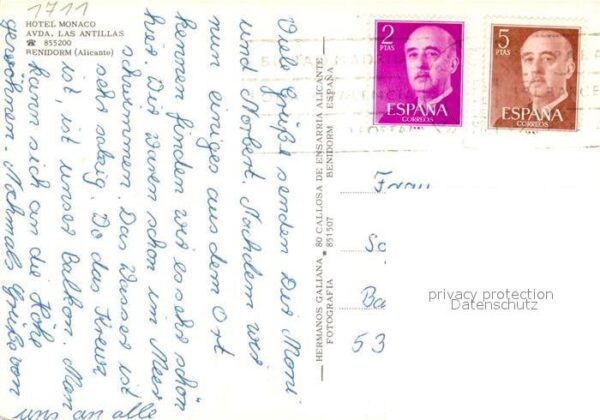 1711
HOTEL MONACO
AVDA. LAS ANTILLAS
☎ 855200
BENIDORM (Alicante)
2
PTAS
ESPAÑA
CORREOS
5
PTAS
ESPAÑA
CORREOS
Viele Grüße senden Dir Moni
und Norbert. Nachdem wir
nun einiges aus dem Ort
kennen finden wir es sehr schön
hier. Wir waren schon im Meer
schwimmen. Das Wasser ist
sehr salzig. Da das Kreuz
ist, ist unser Balkon. Man
kann sich an die Höhe
gewöhnen. Nochmals Grüße von
uns an alle
HERMANOS GALIANA * 80 CALLOSA DE ENSARRIA ALICANTE
FOTOGRAFIA * 851507 BENIDORM ESPAÑA
Frau
So
Ba
53
privacy protection
Datenschutz